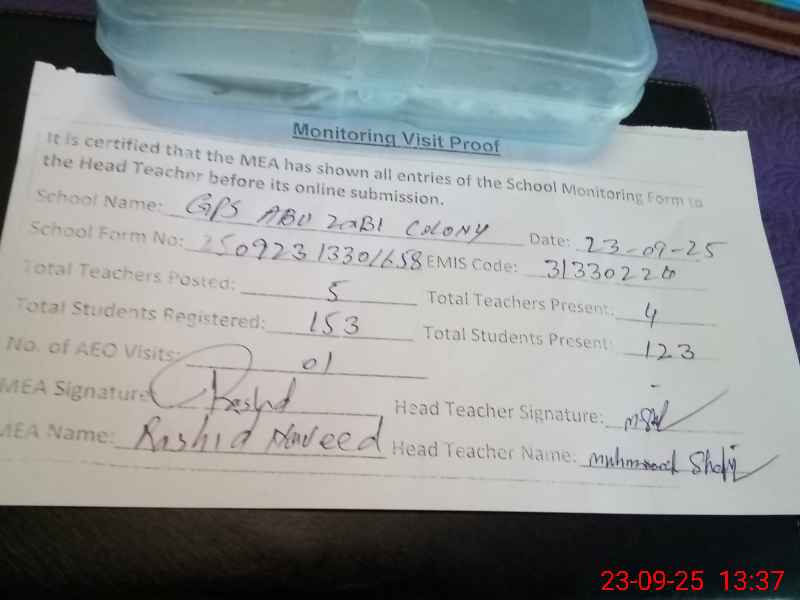 Monitoring Visit Proof
It is certified that the MEA has shown all entries of the School Monitoring Form to
the Head Teacher before its online submission.
School Name: GPS ABU ZABI COLONY Date: 23-09-25
School Form No: 25092313301658 EMIS Code: 31330220
Total Teachers Posted: 5 Total Teachers Present: 4
Total Students Registered: 153 Total Students Present: 123
No. of AEO Visits: 01
MEA Signature: Rashid Head Teacher Signature:
MEA Name: Rashid Naveed Head Teacher Name: Muhammad Shafi
23-09-25 13:37